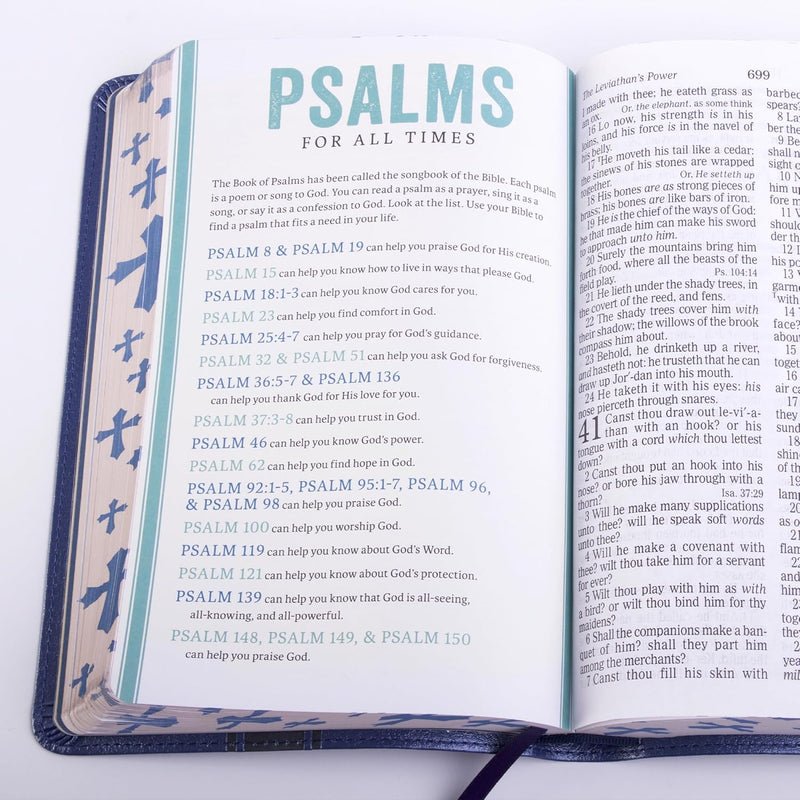 PSALMS
FOR ALL TIMES
The Book of Psalms has been called the songbook of the Bible. Each psalm
is a poem or song to God. You can read a psalm as a prayer, sing it as a
song, or say it as a confession to God. Look at the list. Use your Bible to
find a psalm that fits a need in your life.
PSALM 8 & PSALM 19 can help you praise God for His creation.
PSALM 15 can help you know how to live in ways that please God.
PSALM 18:1-3 can help you know God cares for you.
PSALM 23 can help you find comfort in God.
PSALM 25:4-7 can help you pray for God's guidance.
PSALM 32 & PSALM 51 can help you ask God for forgiveness.
PSALM 36:5-7 & PSALM 136
can help you thank God for His love for you.
PSALM 37:3-8 can help you trust in God.
PSALM 46 can help you know God's power.
PSALM 62 can help you find hope in God.
PSALM 92:1-5, PSALM 95:1-7, PSALM 96,
& PSALM 98 can help you praise God.
PSALM 100 can help you worship God.
PSALM 119 can help you know about God's Word.
PSALM 121 can help you know about God's protection.
PSALM 139 can help you know that God is all-seeing,
all-knowing, and all-powerful.
PSALM 148, PSALM 149, & PSALM 150
can help you praise God.
The Leviathan's Power 699
I made with thee; he eateth grass as
an ox. Or, the elephant, as some think
16 Lo now, his strength is in his
loins, and his force is in the navel of
his belly.
17 He moveth his tail like a cedar:
the sinews of his stones are wrapped
together. Or, He setteth up
18 His bones are as strong pieces of
brass; his bones are like bars of iron.
19 He is the chief of the ways of God:
he that made him can make his sword
to approach unto him.
20 Surely the mountains bring him
forth food, where all the beasts of the
field play. Ps. 104:14
21 He lieth under the shady trees, in
the covert of the reed, and fens.
22 The shady trees cover him with
their shadow; the willows of the brook
compass him about.
23 Behold, he drinketh up a river,
and hasteth not: he trusteth that he can
draw up Jor'-dan into his mouth.
24 He taketh it with his eyes: his
nose pierceth through snares.
41 Canst thou draw out le-vi'-a-
than with an hook? or his
tongue with a cord which thou lettest
down?
2 Canst thou put an hook into his
nose? or bore his jaw through with a
thorn? Isa. 37:29
3 Will he make many supplications
unto thee? will he speak soft words
unto thee?
4 Will he make a covenant with
thee? wilt thou take him for a servant
for ever?
5 Wilt thou play with him as with
a bird? or wilt thou bind him for thy
maidens?
6 Shall the companions make a ban-
quet of him? shall they part him
among the merchants?
7 Canst thou fill his skin with